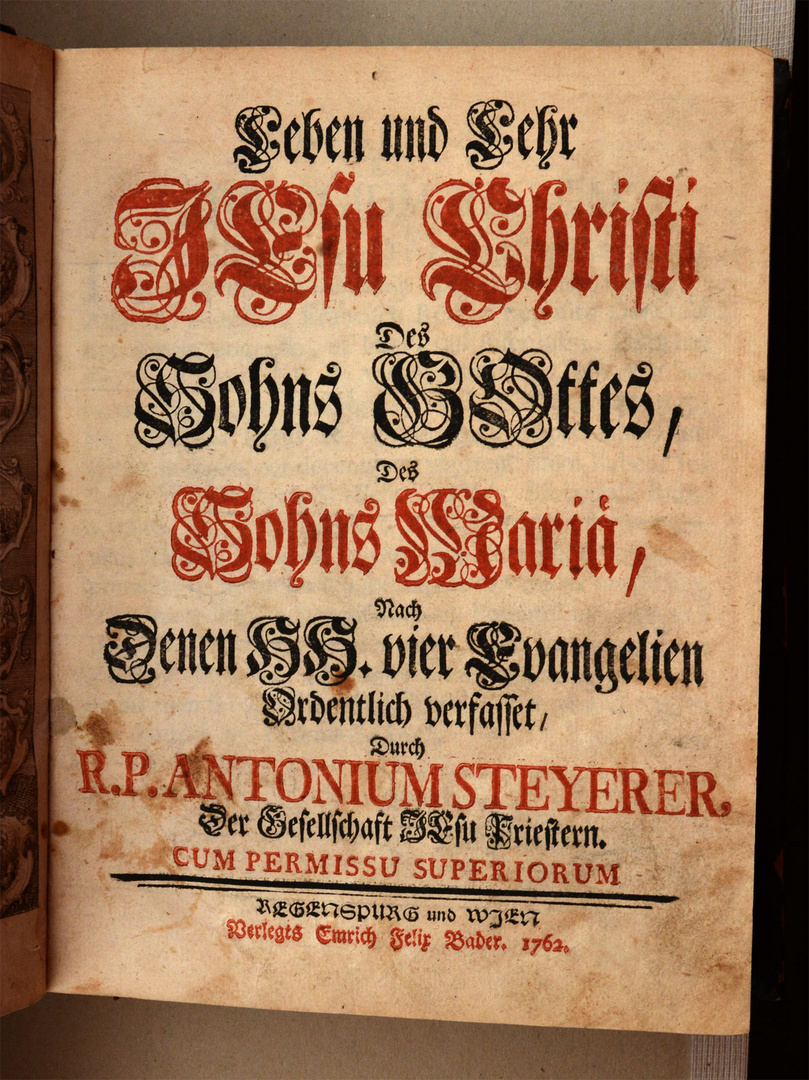 Leben und Lehr
JEsu Christi
Des
Sohns GOttes,
Des
Sohns Mariä,
Nach
Denen HH. vier Evangelien
Ordentlich verfasset,
Durch
R.P. ANTONIUM STEYERER,
Der Gesellschaft JEsu Priestern.
CUM PERMISSU SUPERIORUM
REGENSPURG und WJEN
Verlegts Emrich Felix Bader. 1762.